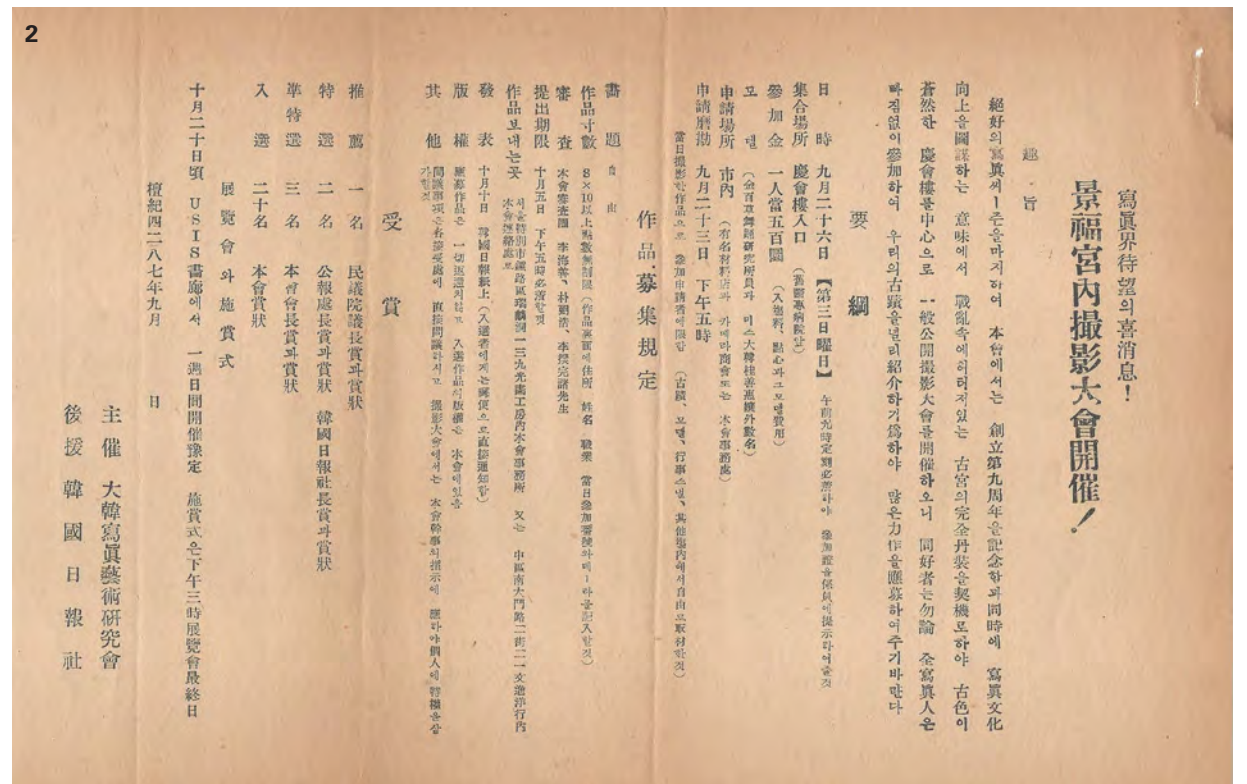 2
寫眞界待望의喜消息!
景福宮內撮影大會開催!
趣旨
絕好의寫眞씨-준을마지하여 本會에서는 創立第九周年을記念함과同時에 寫眞文化
向上을圖謀하는 意味에서 戰亂속에허터저있는 古宮의完全丹裝을契機로하야 古色이
蒼然한 慶會樓를中心으로 一般公開撮影大會를開催하오니 同好者는勿論 全寫眞人은
빠짐없이參加하여 우리의古蹟을널리紹介하기爲하야 많은力作을應募하여주기바란다
要綱
日時 九月二十六日 【第三日曜日】 午前九時定刻必着하야 參加證을係員에提示하여줄것
集合場所 慶會樓入口 (舊醫專病院앞)
參加金 一人當五百圜 (入場料、點心과그모델費用)
모델 (金百草舞踊硏究所員과 미스大韓桂善惠孃外數名)
申請場所 市內 (有名材料店과 카메라商會또는 本會事務處)
申請磨勘 九月二十三日 下午五時
當日撮影한作品으로 參加申請者에限함 (古蹟、모델、行事스냎、其他場內에서自由로取材할것)
作品募集規定
畵題 自由
作品寸數 8×10以上點數無制限 (作品裏面에住所 姓名 職業 當日參加番號와데-타를記入할것)
審査 本會審査團 李海善、朴弼浩、李揆完諸先生
提出期限 十月五日 下午五時必着할것
作品보내는곳 서울特別市鍾路區瑞麟洞一三九光畵工房內本會事務所 又는 中區南大門路二街二一文進洋行內
本會連絡處로
發表 十月十日 韓國日報紙上 (入選者에게는郵便으로直接通知함)
版權 應募作品은 一切返還치않고 入選作品의版權은 本會에있음
其他 問議事項은各接受處에 直接問議하시고 撮影大會에서는 本會幹事의指示에 應하야個人에 特權을삼
가할것
受賞
推薦 一名 民議院議長賞과賞狀
特選 二名 公報處長賞과賞狀 韓國日報社長賞과賞狀
準特選 三名 本會會長賞과賞狀
入選 二十名 本會賞狀
展覽會와施賞式
十月二十日頃 USIS畵廊에서 一週日間開催豫定 施賞式은下午三時展覽會最終日
檀紀四二八七年九月 日
主催 大韓寫眞藝術硏究會
後援 韓國日報社